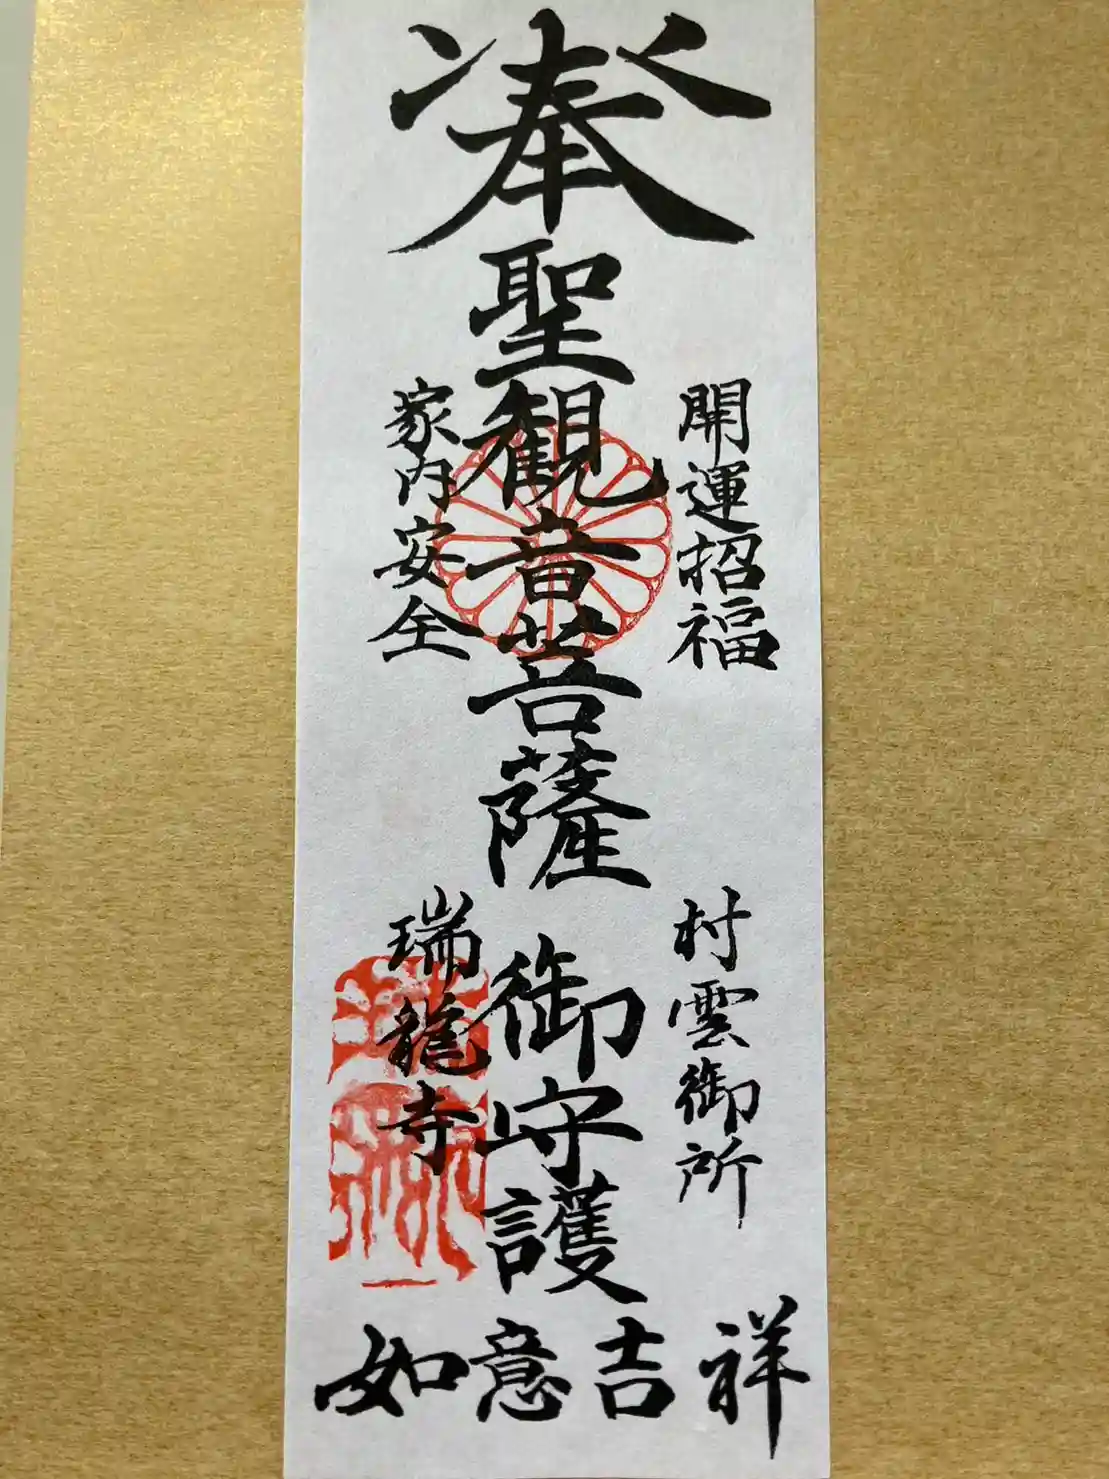 奉
開運招福
聖観音菩薩
家内安全
村雲御所
御守護
瑞龍寺
如意吉祥